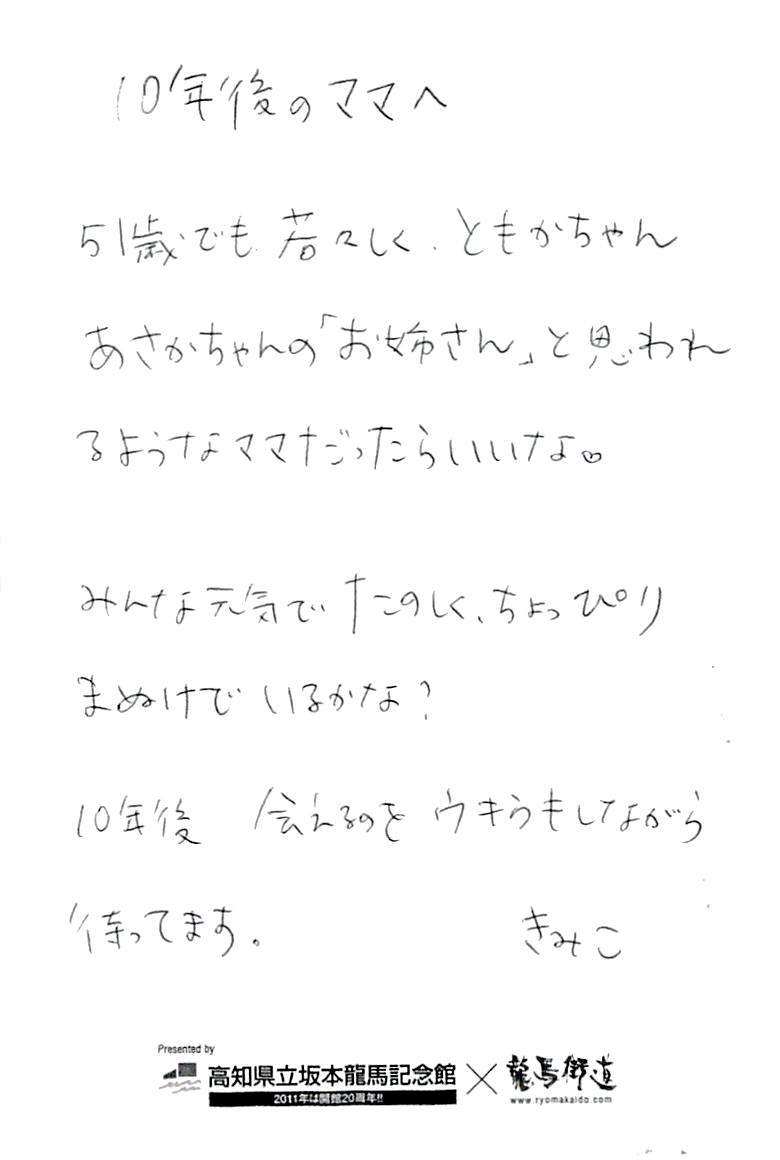 10年後のママへ
51歳でも若々しく、ともかちゃん
あさかちゃんの「お姉さん」と思われ
るようなママだったらいいな♡
みんな元気で たのしく、ちょっぴり
まぬけで いるかな？
10年後 会えるのを ウキうもしながら
待ってます。 きみこ
Presented by
高知県立坂本龍馬記念館×龍馬街道
2011年は開館20周年!!
www.ryomakaido.com